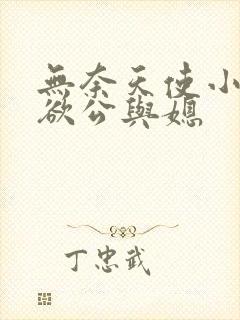 無奈天使小
欲公與媳
丁忠武